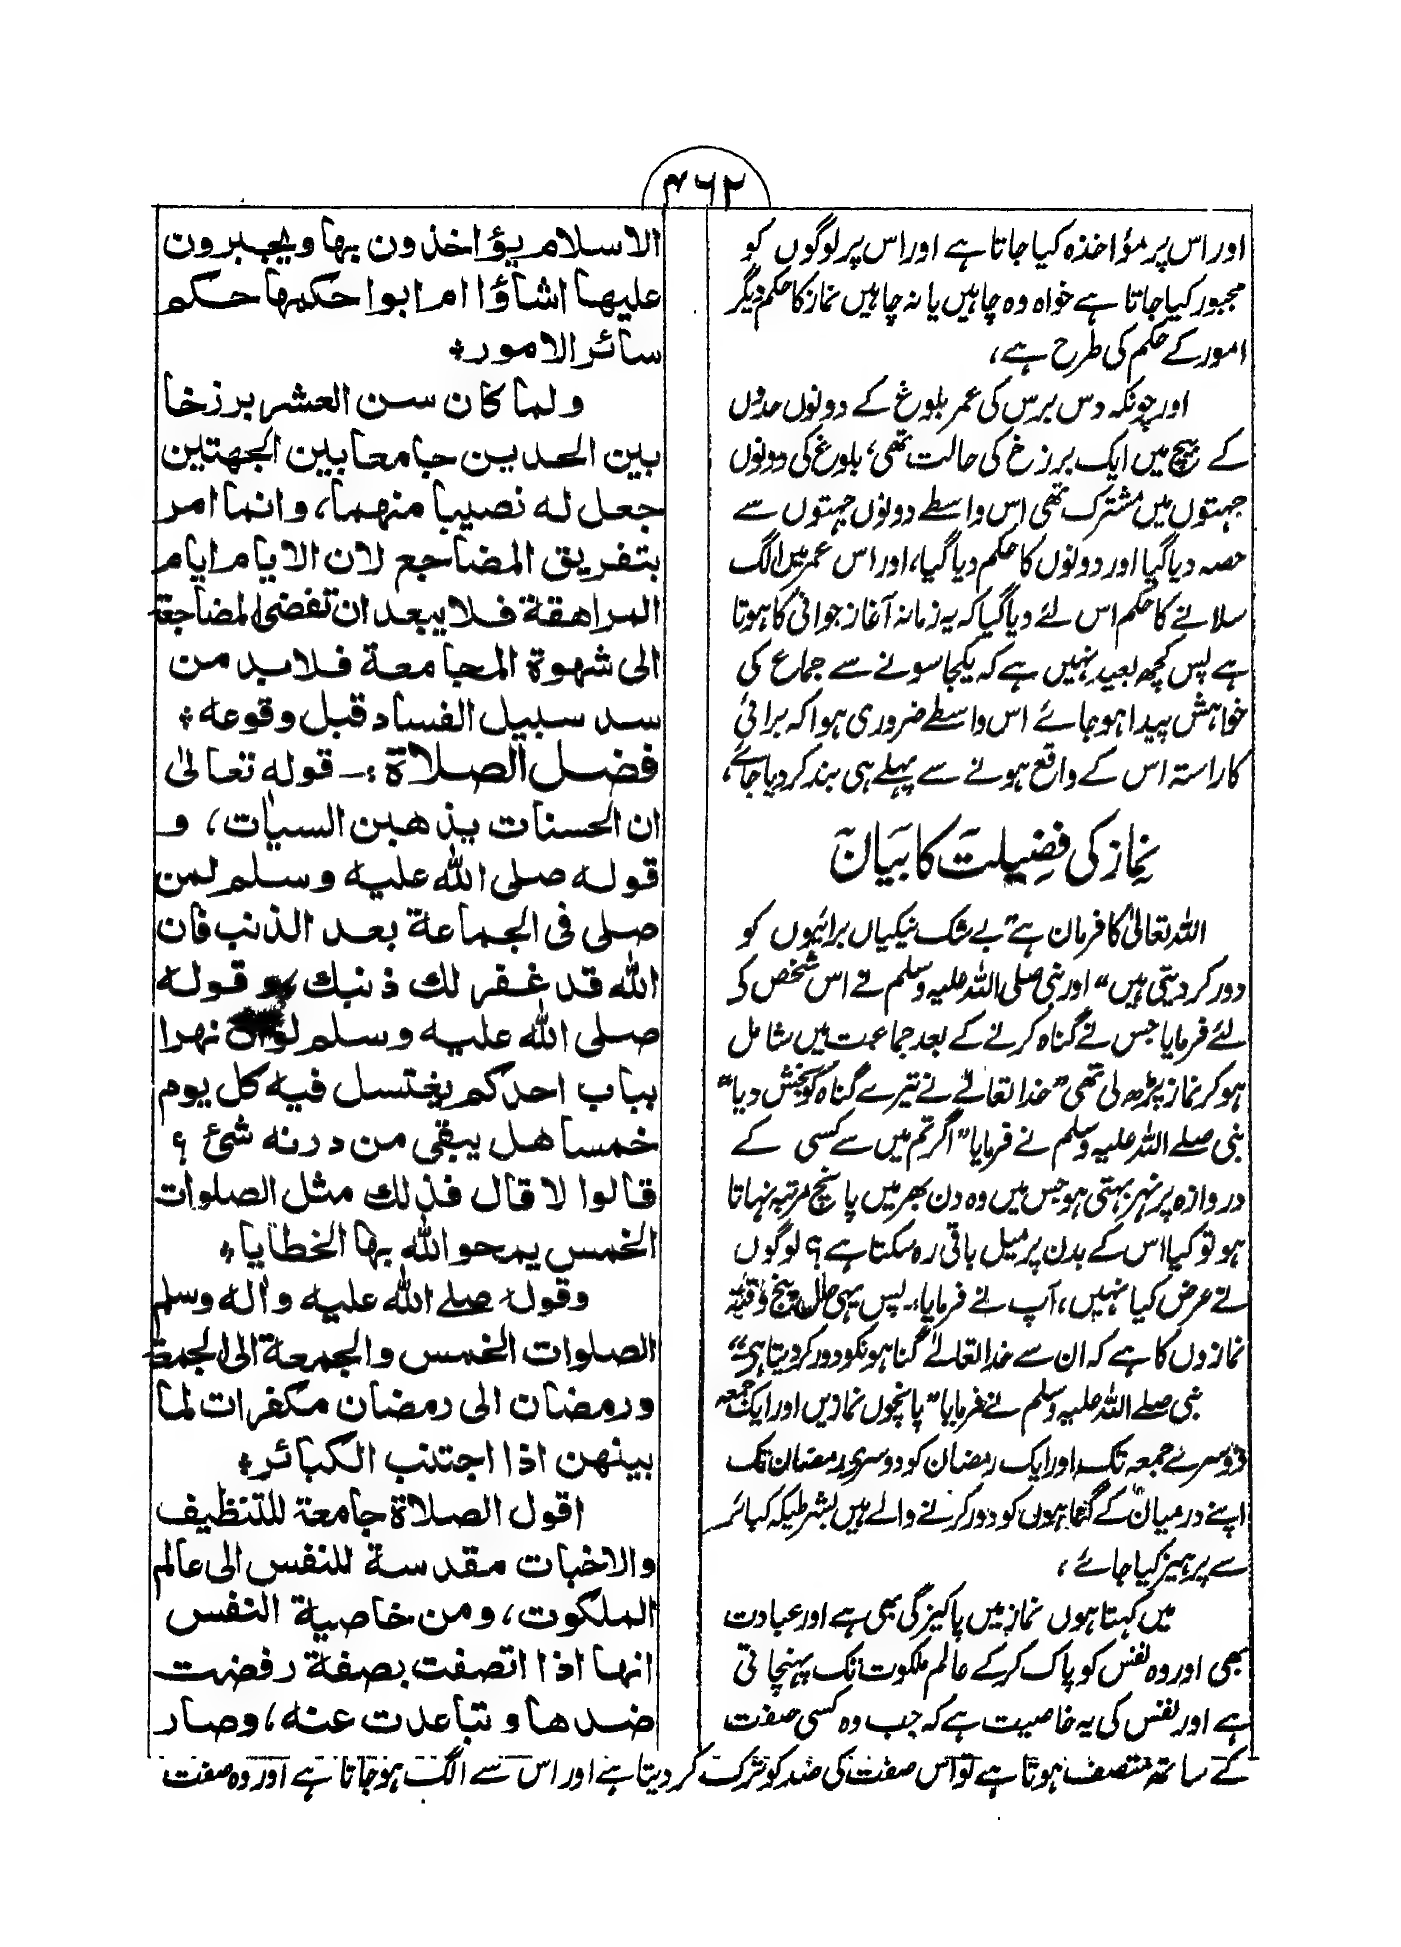 ۴۶۲
اور اس پر مؤاخذہ کیا جاتا ہے اور اس پر لوگوں کو
مجبور کیا جاتا ہے خواہ وہ چاہیں یا نہ چاہیں نماز کا حکم دیگر
امور کے حکم کی طرح ہے،
اور چونکہ دس برس کی عمر بلوغ کے دونوں حدوں
کے بیچ میں ایک برزخ کی حالت تھی، بلوغ کی دونوں
جہتوں میں مشترک تھی اس واسطے دونوں جہتوں سے
حصہ دیا گیا اور دونوں کا حکم دیا گیا، اور اس عمر میں الگ
سلانے کا حکم اس لئے دیا گیا کہ یہ زمانہ آغاز جوانی کا ہوتا
ہے پس کچھ بعید نہیں ہے کہ یکجا سونے سے جماع کی
خواہش پیدا ہو جائے اس واسطے ضروری ہوا کہ برائی
کا راستہ اس کے واقع ہونے سے پہلے ہی بند کر دیا جائے،
نماز کی فضیلت کا بیان
اللہ تعالیٰ کا فرمان ہے "بے شک نیکیاں برائیوں کو
دور کر دیتی ہیں" اور نبی صلی اللہ علیہ وسلم نے اس شخص کے
لئے فرمایا جس نے گناہ کرنے کے بعد جماعت میں شامل
ہو کر نماز پڑھ لی تھی "خدا تعالےٰ نے تیرے گناہ کو بخش دیا"
نبی صلے اللہ علیہ وسلم نے فرمایا "اگر تم میں سے کسی کے
دروازہ پر نہر بہتی ہو جس میں وہ دن بھر میں پانچ مرتبہ نہاتا
ہو تو کیا اس کے بدن پر میل باقی رہ سکتا ہے؟ لوگوں
نے عرض کیا نہیں، آپ نے فرمایا:۔ پس یہی حال پنج وقتہ
نمازوں کا ہے کہ ان سے خدا تعالےٰ گناہونکو دور کر دیتا ہی"
نبی صلے اللہ علیہ وسلم نے فرمایا "پانچوں نمازیں اور ایک جمعہ
دوسرے جمعہ تک اور ایک رمضان کو دوسری رمضان تک
اپنے درمیان کے گناہوں کو دور کرنے والے ہیں بشرطیکہ کبائر
سے پرہیز کیا جائے،
میں کہتا ہوں نماز میں پاکیزگی بھی ہے اور عبادت
بھی اور وہ نفس کو پاک کر کے عالم ملکوت تک پہنچاتی
ہے اور نفس کی یہ خاصیت ہے کہ جب وہ کسی صفت
کے ساتھ متصف ہوتا ہے تو اس صفت کی ضد کو ترک کر دیتا ہے اور اس سے الگ ہو جاتا ہے اور وہ صفت
الاسلام يؤاخذون بها ويجبرون
عليها اشاؤا ام ابوا حكمها حكم
سائر الامور۔
ولما كان سن العشر برزخا
بين الحدين جامعا بين الجهتين
جعل له نصيبا منهما، وانما امر
بتفريق المضاجع لان الايام ايام
المراهقة فلا يبعد ان تفضى المضاجعة
الى شهوة المجامعة فلابد من
سد سبيل الفساد قبل وقوعه۔
فضل الصلاة :۔ قوله تعالىٰ
ان الحسنات يذهبن السيات، و
قوله صلى الله عليه وسلم لمن
صلى فى الجماعة بعد الذنب فان
الله قد غفر لك ذنبك و قوله
صلى الله عليه وسلم لو ان نهرا
بباب احدكم يغتسل فيه كل يوم
خمسا هل يبقى من درنه شئ ؟
قالوا لا قال فذلك مثل الصلوات
الخمس يمحو الله بها الخطايا۔
وقوله صلے الله عليه واٰله وسلم
الصلوات الخمس والجمعة الى الجمعة
ورمضان الى رمضان مكفرات لما
بينهن اذا اجتنب الكبائر۔
اقول الصلاة جامعة للتنظيف
والاخبات مقدسة للنفس الى عالم
الملكوت، ومن خاصية النفس
انها اذا اتصفت بصفة رفضت
ضدها وتباعدت عنه، وصار